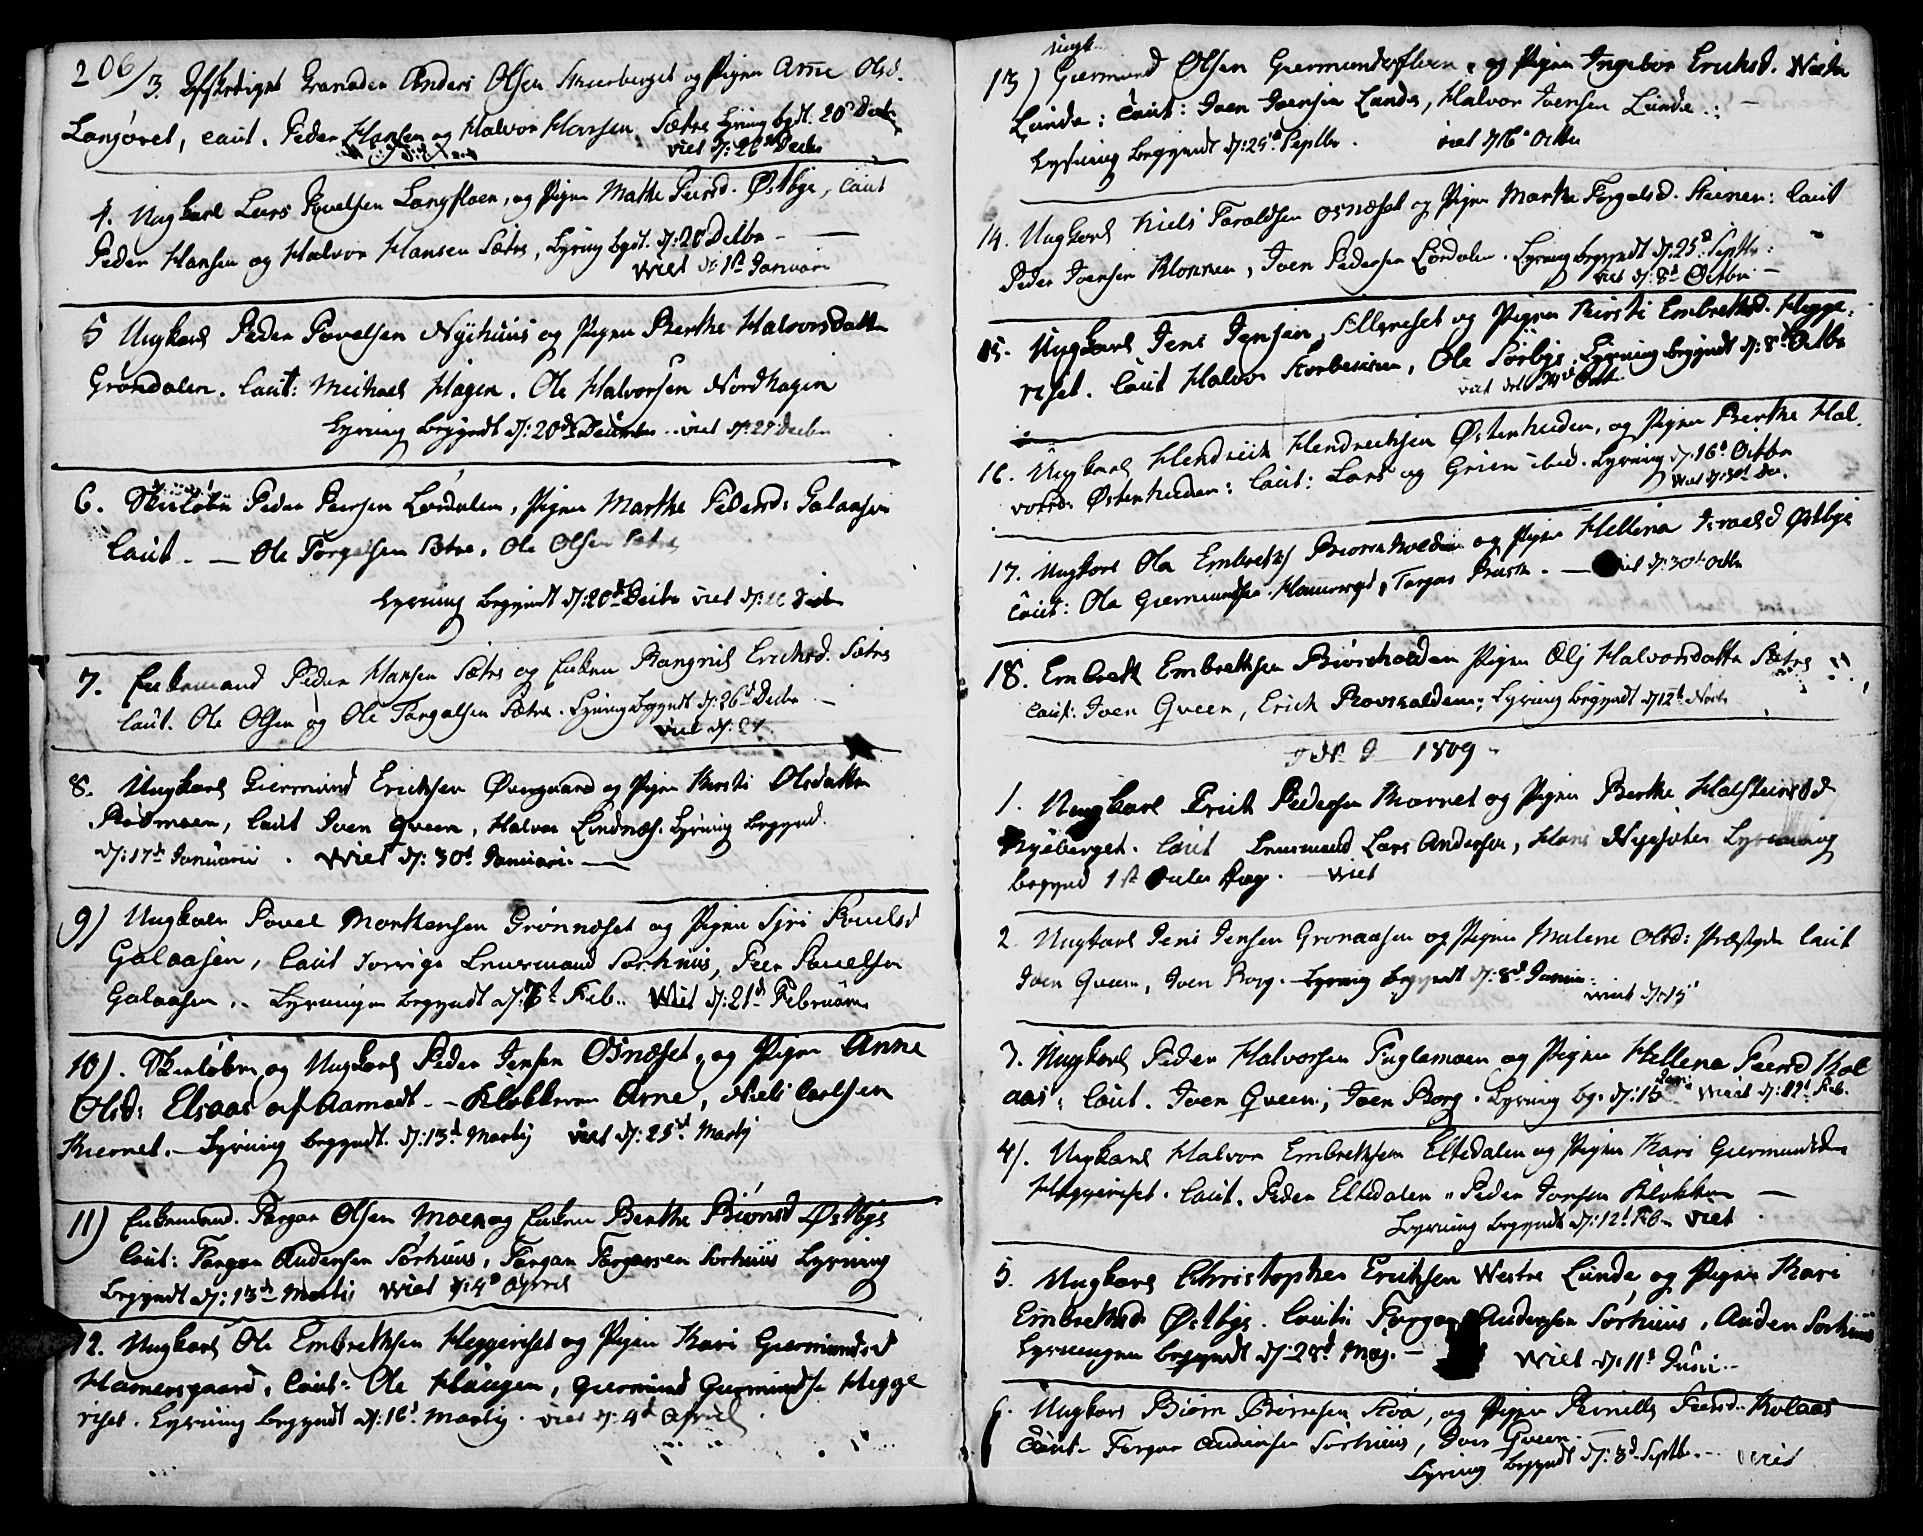 206/
3. Afskediget Granader Anders Olsen Skierberget og Pigen Arne Olsd.
Langöret, caut. Peder Hansen og Halvor Hansen Sætre Lysning bgdt. 20d Decbr
viet d: 26d Decbr
4. Ungkarl Lars Povelsen Langfloen, og Pigen Marthe Peersd. Østbye, caut
Peder Hansen og Halvor Hansen Sætre, Lysning bgdt. d: 20 Decbr
Wiet d: 1st Januari
5 Ungkarl Peder Povelsen Nyehuus og Pigen Berthe Halvorsdatter
Grøndalen. Caut: Michael Hagen. Ole Halvorsen Nordhagen
Lysning begyndt d: 20de December .. viet d: 27 Decbr
6. Skieløber Peder Peersen Lørdalen, Pigen Marthe Pedersd: Galaasen
Caut. — Ole Torgalsen Sætre, Ole Olsen Sætre
Lysning begyndt d: 20d Decbr viet d: Decbr
7. Enkemand Peder Hansen Sætre og Enken Rangnil Erichsd. Sætre
Caut. Ole Olsen og Ole Torgalsen Sætre. Lysning begyndt d: 26d Decbr
viet d: 27
8. Ungkarl Giermund Erichsen Øvergaard og Pigen Kersti Olsdatter
Rødmoen, Caut Iven Qveen, Halvor Lindnæs. Lysning begynd.
d: 17d Januarii . Wiet d: 30d Januari —
9) Ungkarl Povel Mortensen Grönnoset og Pigen Siri Povelsd
Galaasen, Caut Lensmand Sörhuus, Peer Povelsen
Galaasen .. Lysningen begyndt d: 6d Feb.. Wiet d: 21d Februari
10). Skieløber og Ungkarl Peder Jensen Osnæset, og Pigen Anne
Olsd: Elsaas af Aamodt — Klokkeren Arne, Niels Carlsen
Kiernet. — Lysning begyndt. d: 13d Martij viet d: 25d Martij
11) Enkemand. Torgar Olsen Moen og Enken Berthe Biörnsd Østbye
Caut: Torgar Andersen Sörhuus, Torgar Torgersen Sörhuus Lysning
begyndt d: 13d Martij Wiet d: 4d April
12. Ungkarl Ole Embrethsen Heggeriset og Pigen Kari Giermundsd
Hamersgaard. Caut: Ole Haugen, Giermund Giermunds. Hegge
riset. Lysning begyndt d: 16d Martij. viet d: 4d April
ungk
13) Giermund Olsen Giermundsfloen, og Pigen Ingebor Erichsd. Westre
Lunde: Caut: Iven Ivensen Lunde, Halvor Ivensen Lunde .:
Lysning begyndt d: 25d Septbr. viet d 16d Octbr
14. Ungkarl Niels Taraldsen Osnæset og Pigen Marthe Torgalsd. Steinen: Caut
Peder Ivensen Klokken, Iven Pedersen Lördalen. Lysning begyndt d: 25d Septbr:
viet d: 8d Octbr
15. Ungkarl Jens Jensen, og Pigen Kirsti Embrethsd. Hegge
riset. Caut Halvor, Ole Sörbye. Lysning begyndt d: 8d Octbr
viet Octb
16. Ungkarl Hendrich Hendrichsen Østenheden, og Pigen Berthe Hal
vorsd: Østenheden: Caut: Lars og ibid. Lysning d: 16d Octbr
Wiet d: 30d Do.
17. Ungkarl Ole Embreths Biörnholden og Pigen Hellena Israelsd Østbye
Caut: Ole Giermundsen Hamersgd, Torgar. — viet d: 30d Octbr
18. Embreth Embrethsen Biörnholden Pigen Olj Halvorsdatter Sætre
Caut: Iven Qveen, Erich; Lysning begyndt d 12d Novbr
1809
1. Ungkarl Erich Pedersen Kornet og Pigen Berthe Halsteinsd
Ryeberget. Caut Lensmand Lars Andersen, Hans Nysæter Lysning
begynd 1st Jule Dag. — Wiet
2. Ungkarl Jens Jensen Gronaasen og Pigen Malene Olsd: Caut
Iven Qveen, Iven Borg. Lysning begyndt d: 8d Januar:
Wiet d: 15
3. Ungkarl Peder Halvorsen Fuglemoen og Pigen Hellena Peersd Kol
aas; Caut. Iven Qveen, Iven Borg. Lysning bg. d: 15 Janri Wiet d: 12d Feb.
4). Ungkarl Halvor Embrethsen Eltedalen og Pigen Kari Giermundsd
Heggeriset. Caut. Peder Eltedalen. Peder Iversen Klokken —
Lysning begyndt d: 12d Feb. viet
5. Ungkarl Christopher Erichsen Westre Lunde, og Pigen Kari
Embrethsd. Østbye. Caut: Torgar Andersen Sörhuus, Anders Sörhuus
Lysningen begyndt d: 28d Maj. — Wiet d: 11d Juni. —
6. Ungkarl Biörn Biörnsen Floa, og Pigen Peersd. Kolaas
Caut. Torgar Andersen Sörhuus, Iver Qveen.
Lysning begyndt d: 3d Septbr. — viet